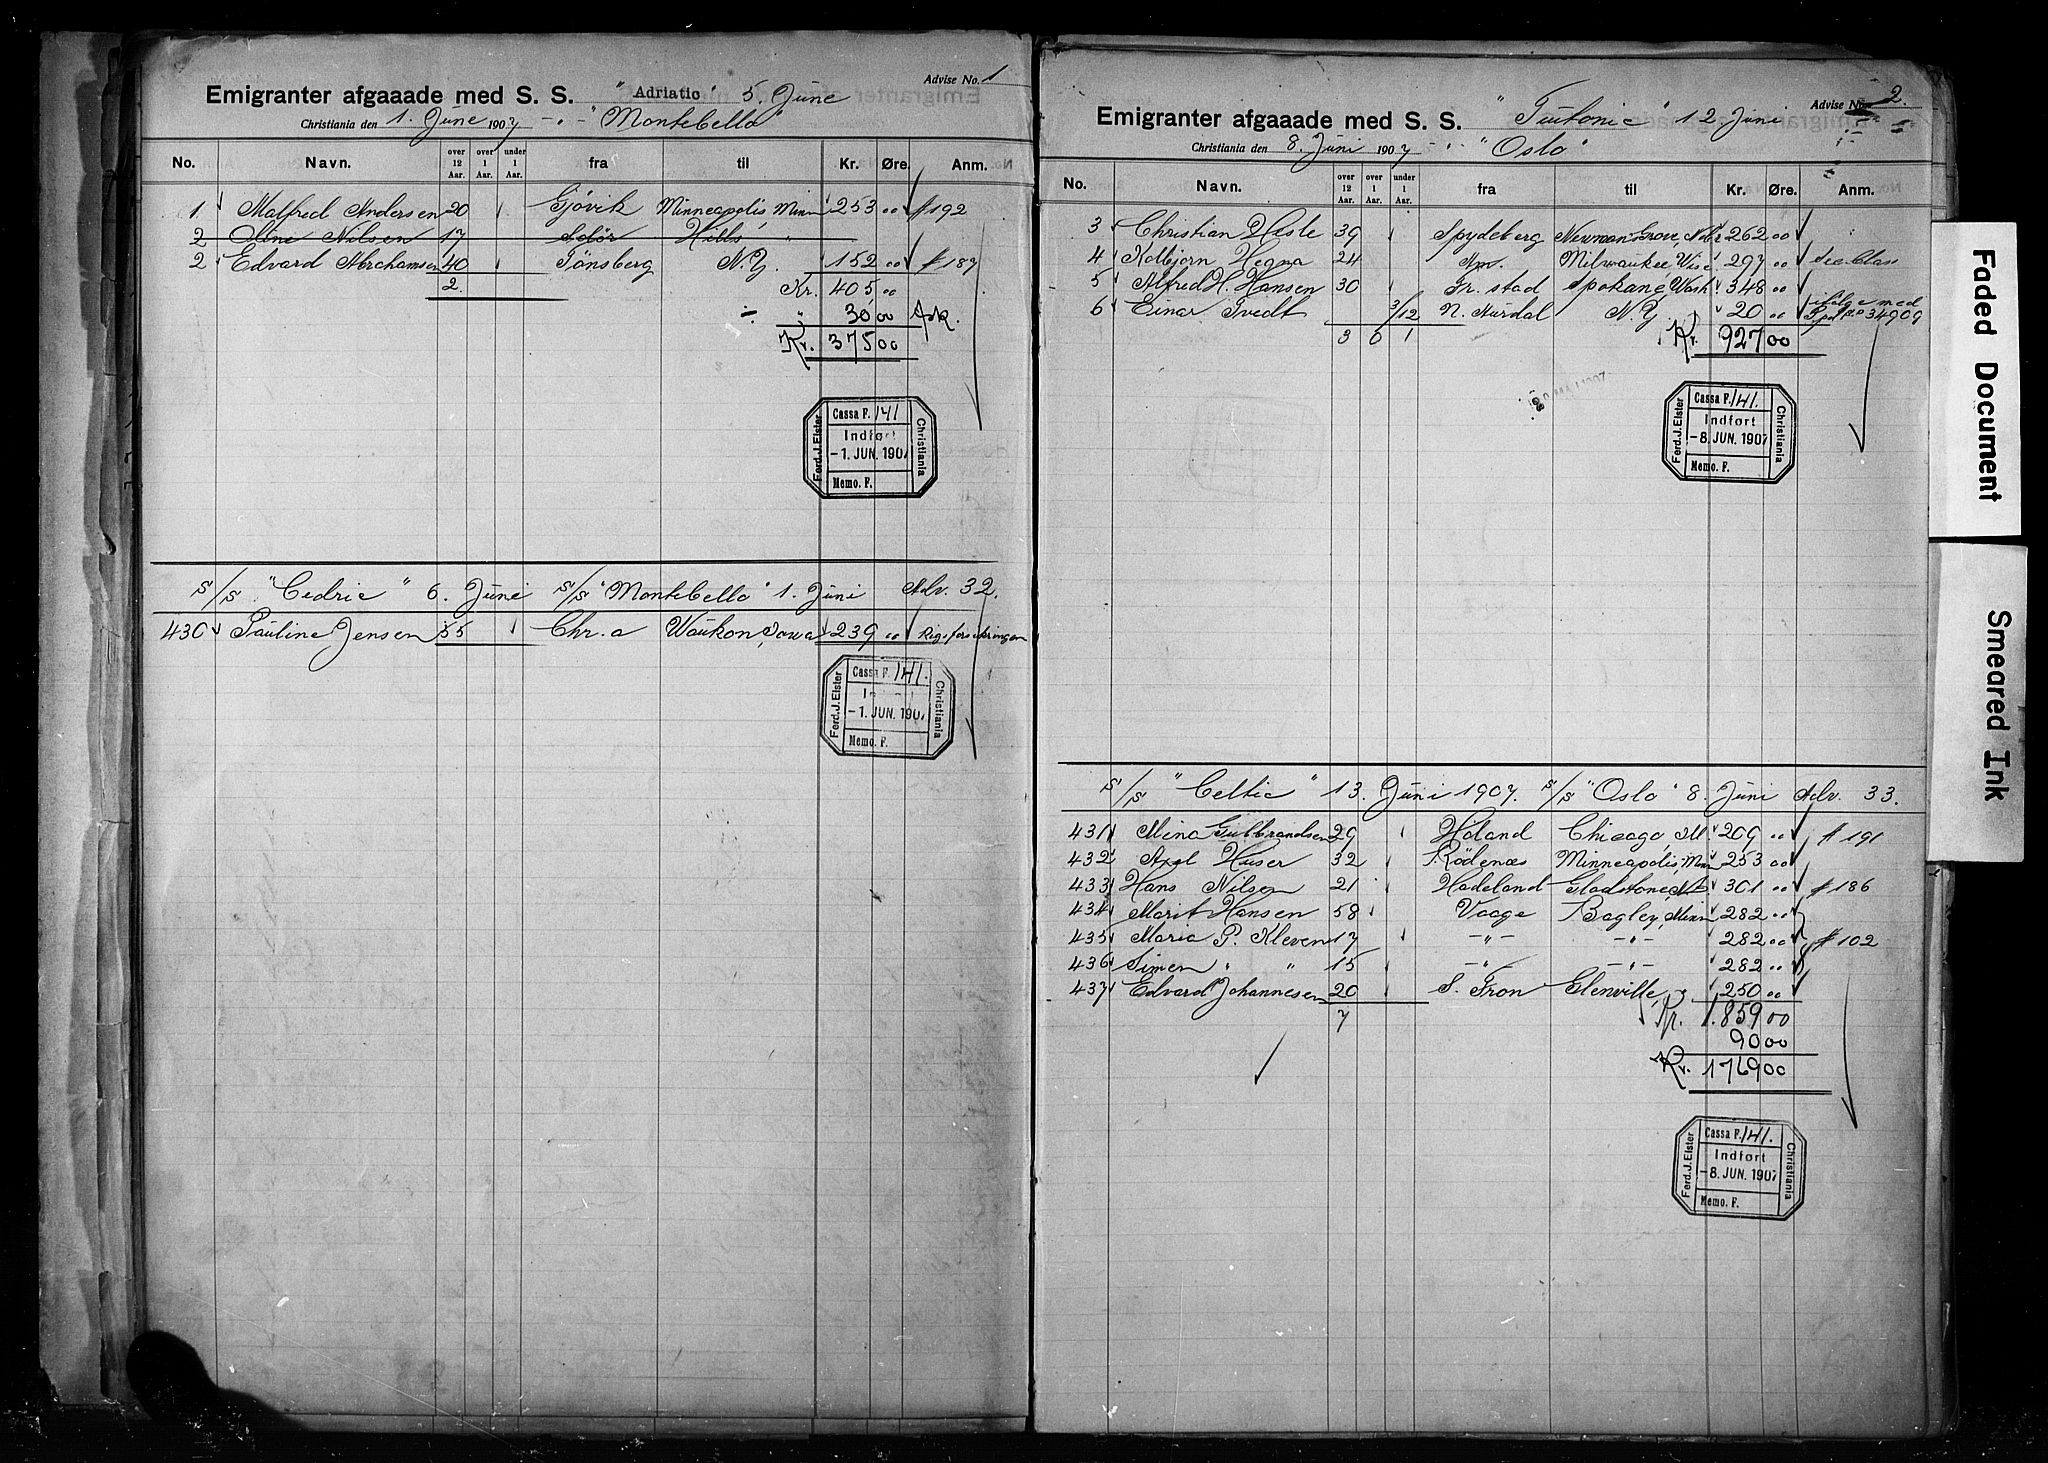 Advise No. 1
Emigranter afgaaade med S. S. "Adriatic" 5. June
Christiania den 1. June 1907 - " - "Montebello"
No. Navn. over 12 Aar. over 1 Aar. under 1 Aar. fra til Kr. Øre. Anm.
1 Malfred Andersen 20 Gjøvik Minneapolis, Minn 253 00 # 192
2 Nilsen 17 Hills "
2 Edvard Abrahamsen 40 Tønsberg N.Y. 152 00 # 187
2 Kr. 405 00
÷ " 30 00
Kr. 375 00
Ferd. J. Elster
Cassa F. 141
Indført
-1. JUN. 1907
Memo. F.
Christiania
S/S "Cedric" 6. June S/S "Montebello" 1. Juni Adv. 32.
430 Pauline Jensen 55 Chr.a Waukon, Iowa 239 00
Ferd. J. Elster
Cassa F. 141.
-1. JUN. 1907
Memo. F.
Christiania
Advise No. 2.
Emigranter afgaaade med S. S. "Teutonic" 12 Juni
Christiania den 8. Juni 1907 - " - "Oslo"
No. Navn. over 12 Aar. over 1 Aar. under 1 Aar. fra til Kr. Øre. Anm.
3 Christian Hesle 39 Spydeberg Newman Grove, Nebr 262 00
4 Kolbjørn Hegna 24 Milwaukee, Wisc 297 00
5 Alfred H. Hansen 30 Fr. stad Spokane, Wash 348 00
6 Einar Tvedt 3/12 N. Aurdal N.Y. 20 00 ifølge med 34909
3 0 1 Kr. 927 00
Ferd. J. Elster
Cassa F. 141.
Indført
-8. JUN. 1907
Memo. F.
Christiania
S/S "Celtic" 13. Juni 1907. S/S "Oslo" 8. Juni Adv. 33.
431 Mina Gulbrandsen 29 Høland Chicago, Ill 209 00 # 191
432 Axel Huser 32 Rødenæs Minneapolis, Minn 253 00
433 Hans Nilsen 21 Hadeland Gladstone, 301 00 # 186
434 Marit Hansen 58 Vaage Bagley, Minn 282 00
435 Maria P. Kleven 17 - " - - " - 282 00 # 102
436 Simen " " 15 - " - - " - 282 00
437 Edvard Johannesen 20 S. Fron Glenville, " 250 00
7 Kr. 1.859 00
90 00
Kr. 1769 00
Ferd. J. Elster
Cassa F. 141.
Indført
-8. JUN. 1907
Memo. F.
Christiania
Faded Document
Smeared Ink